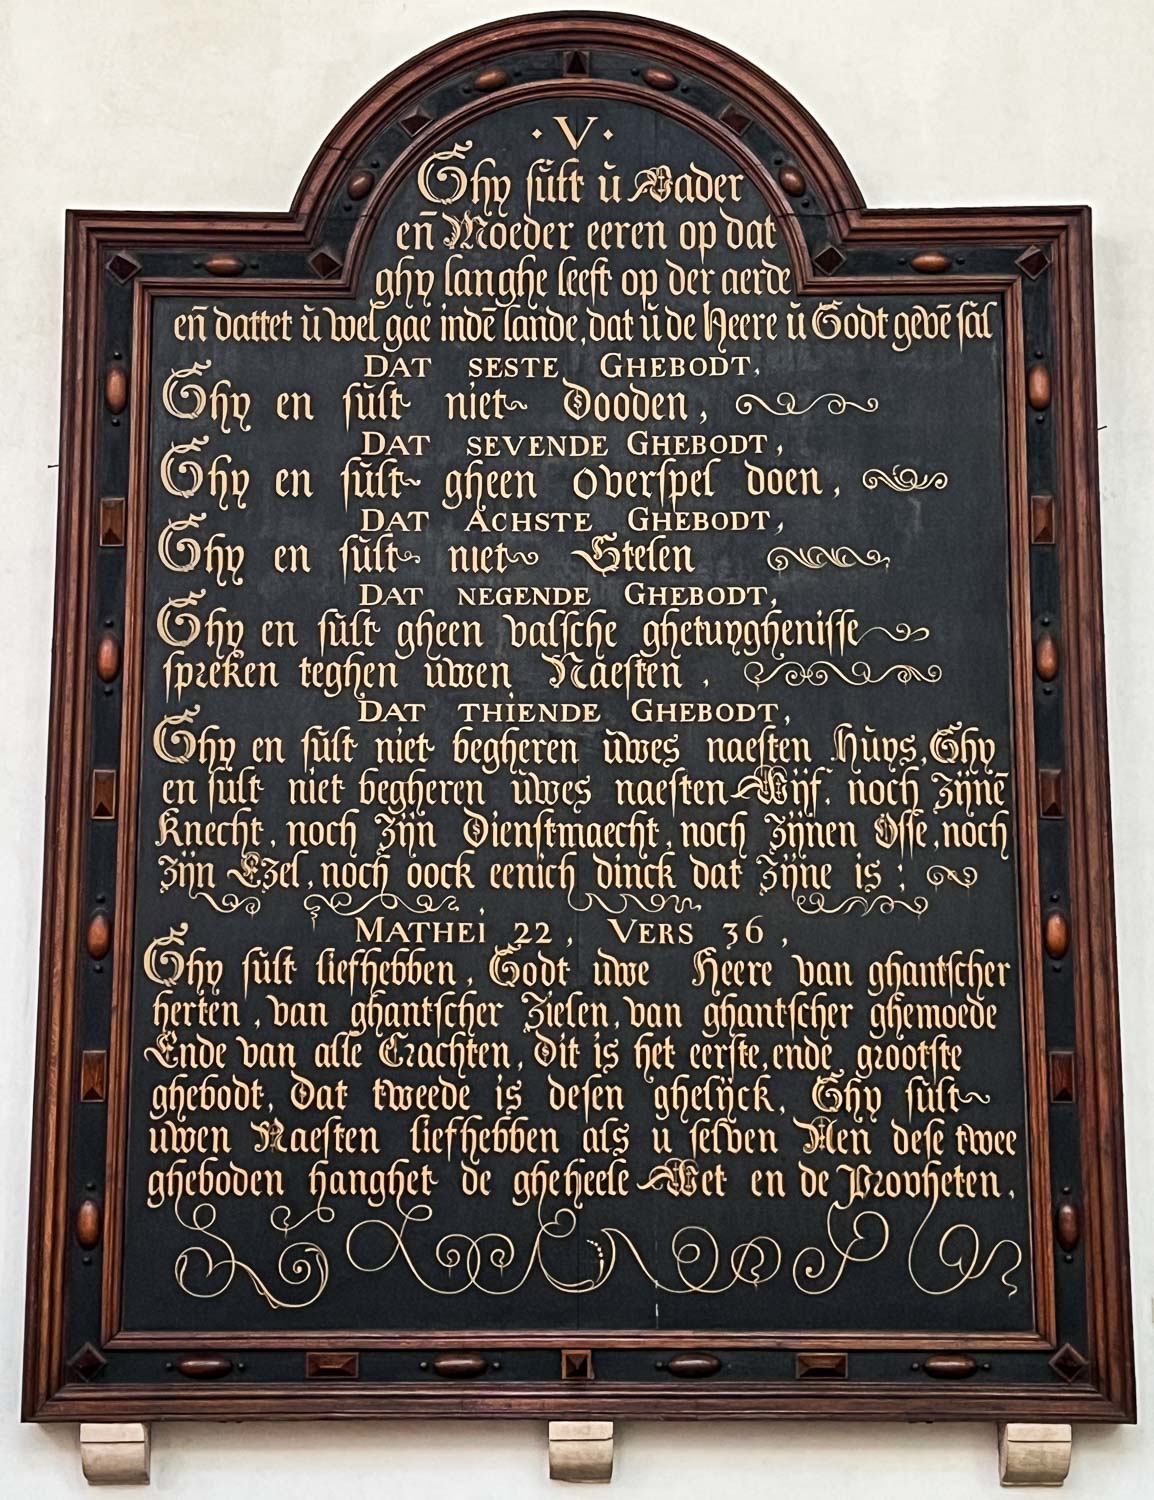 · V ·
Ghy sŭlt ŭ Vader
en̄ Moeder eeren op dat
ghy langhe leeft op der aerde
en̄ dattet ŭ wel gae indē lande, dat ŭ de Heere ŭ Godt gevē sal
DAT SESTE GHEBODT,
Ghy en sŭlt niet Dooden,
DAT SEVENDE GHEBODT,
Ghy en sŭlt gheen overspel doen,
DAT ACHSTE GHEBODT,
Ghy en sŭlt niet Stelen
DAT NEGENDE GHEBODT,
Ghy en sŭlt gheen valsche ghetuyghenisse
spreken teghen ŭwen Naesten,
DAT THIENDE GHEBODT,
Ghy en sŭlt niet begheren ŭwes naesten Hŭys, Ghy
en sult niet begheren ŭwes naesten Wijf, noch zijnē
Knecht, noch zijn Dienstmaecht, noch zijnen Osse, noch
zijn Ezel, noch oock eenich dinck dat zijne is;
MATHEI 22, VERS 36,
Ghy sŭlt liefhebben, Godt uwe Heere van ghantscher
herten, van ghantscher Zielen, van ghantscher ghemoede
Ende van alle Crachten, Dit is het eerste, ende grootste
ghebodt, Dat tweede is desen ghelijck, Ghy sŭlt
uwen Naesten liefhebben als u selven Aen dese twee
gheboden hanghet de gheheele Wet en de Propheten,